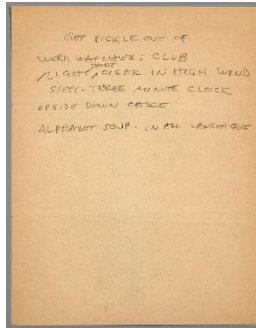 GET PICKLE OUT OF
WORM WATCHERS CLUB
LIGHT SHORT CIGAR IN HIGH WIND
SIXTY-THREE MINUTE CLOCK
UPSIDE DOWN CAKE
ALPHABET SOUP - IN ALL LANGUAGES